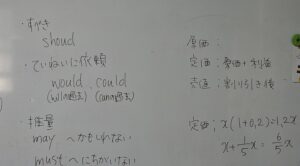 ・すべき
shoud
・ていねいに依頼
would, could
(willの過去) (canの過去)
・推量
may 〜かもしれない
must 〜にちがいない
原価:
定価: 原価+利益
売価: 割り引き後
定価; x(1+0,2)=1,2x
x+1/5x=6/5x